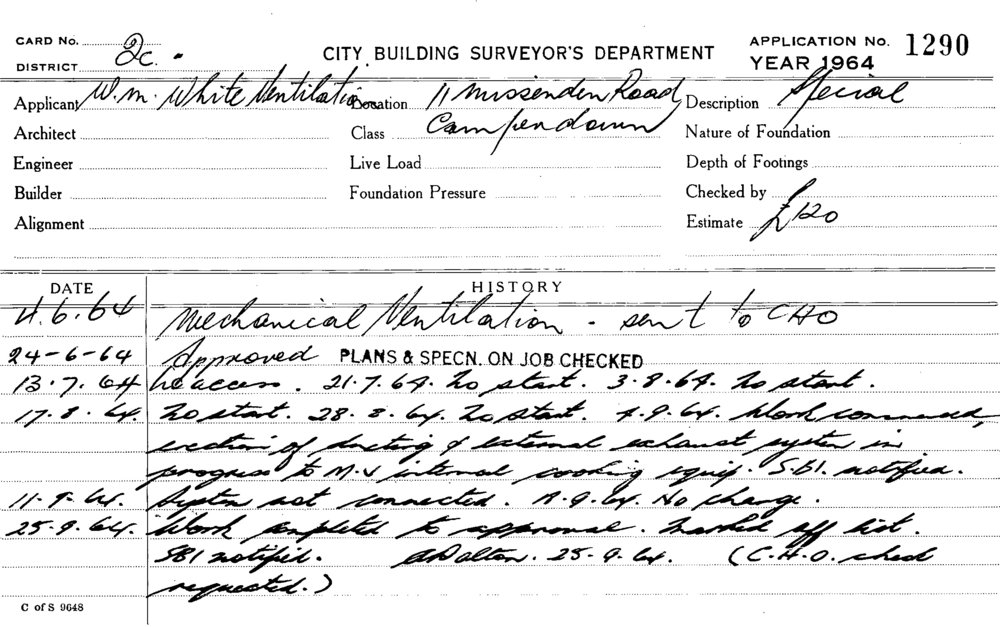 CARD No. 2c.
CITY BUILDING SURVEYOR'S DEPARTMENT
APPLICATION No. 1290
DISTRICT
YEAR 1964
Applicant W. M. White Ventilation Location 11 Missenden Road, Description Special
Architect Class Camperdown Nature of Foundation
Engineer Live Load Depth of Footings
Builder Foundation Pressure Checked by
Alignment Estimate £120
DATE HISTORY
4.6.64 Mechanical Ventilation - sent to CHO
24-6-64 Approved PLANS & SPECN. ON JOB CHECKED
13.7.64 No access. 21.7.64. No start. 3.8.64. No start.
17.8.64. No start. 28.8.64. No start. 4.9.64. Work commenced,
erection of ducting & external exhaust system in
progress to M.V internal cooking equip. S.B.I. notified.
11-9-64. System not connected. 18.9.64. No change.
25.9.64. Work completed to approval. Marked off list.
SBI notified. 25.9.64. (C.H.O. check
requested.)
C of S 9648